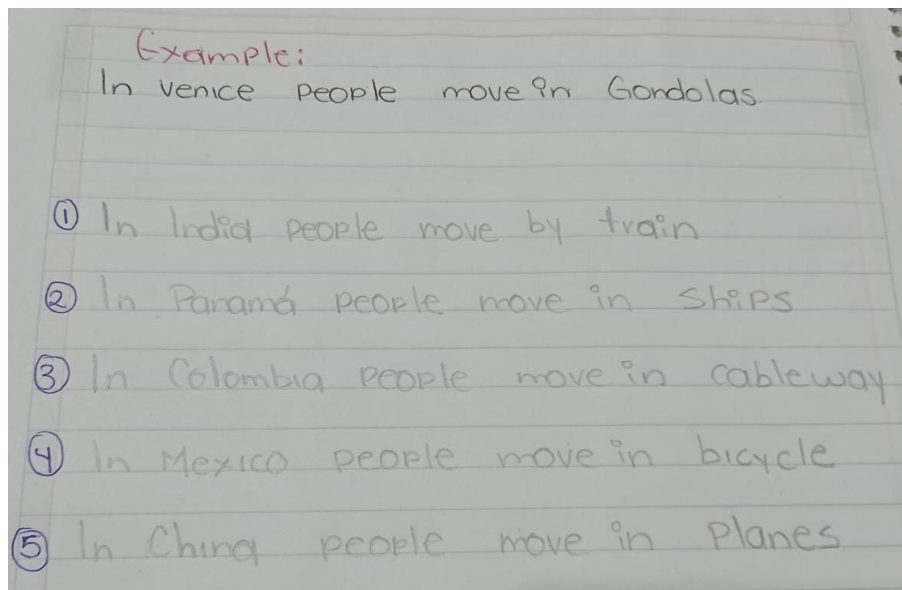 Example:
In Venice people move in Gondolas.
① In India people move by train
② In Panamá people move in ships
③ In Colombia people move in cableway
④ In Mexico people move in bicycle
⑤ In China people move in Planes